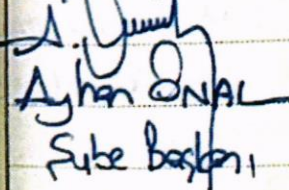 Ayhan ÖNAL
Şube Başkanı